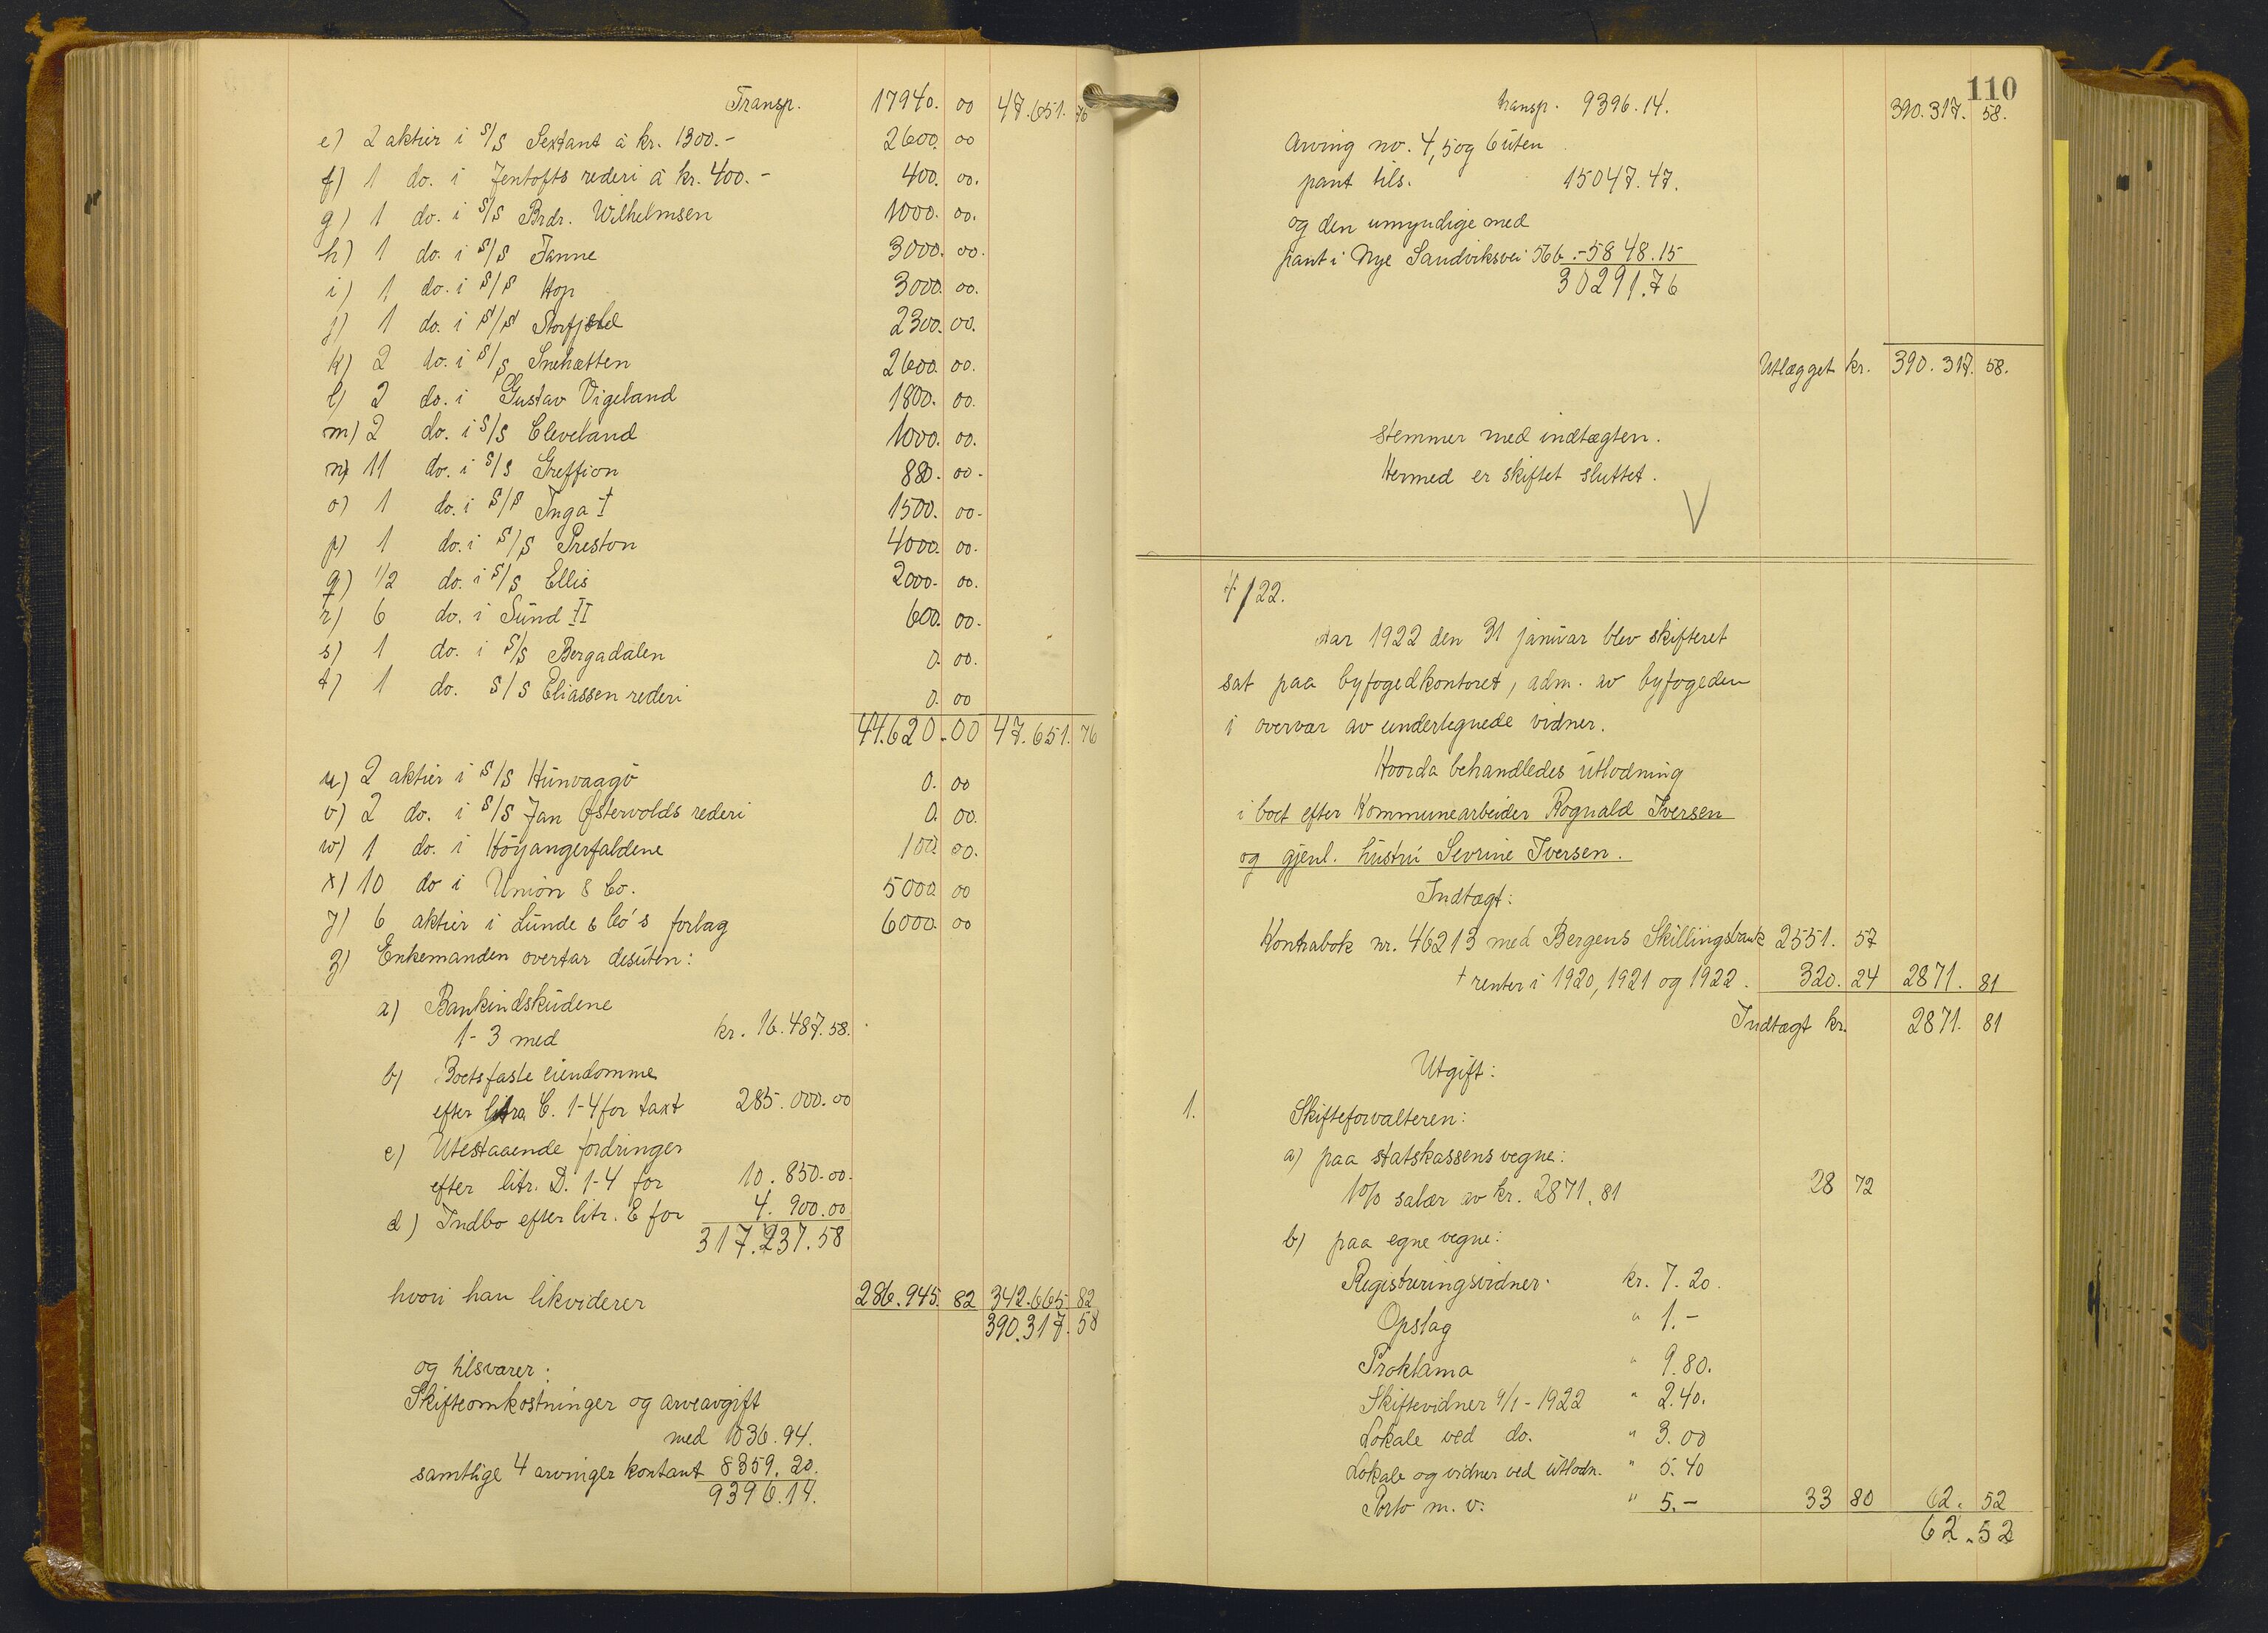 Transp. 17940. 00 47.651. 76
e) 2 aktier i S/S Sextant à kr. 1300.- 2600. 00
f) 1 do. i Jentofts rederi à kr. 400.- 400. 00.
g) 1 do. i S/S Brdr. Wilhelmsen 1000. 00.
h) 1 do. i S/S Janne 3000. 00.
i) 1 do. i S/S Hop 3000. 00.
j) 1 do. i S/S 2300. 00.
k) 2 do. i S/S Snehætten 2600. 00.
l) 2 do. i Gustav Vigeland 1800. 00.
m) 2 do. i S/S Cleveland 1000. 00.
n) 11 do. i S/S Greffion 880. 00.
o) 1 do. i S/S Inga I 1500. 00.
p) 1 do. i S/S Preston 4000. 00.
q) 1/2 do. i S/S Ellis 2000. 00.
r) 6 do. i Sund II 600. 00.
s) 1 do. i S/S Bergadalen 0. 00.
t) 1 do. S/S Eliassen rederi 0. 00
44.620.00 47.651. 76
u) 2 aktier i S/S Hunvaagö 0. 00
v) 2 do. i S/S Jan Østervolds rederi 0. 00.
w) 1 do. i Höyangerfaldene 100. 00.
x) 10 do i Union & Co. 5000. 00
y) 6 aktier i Lunde & Co's forlag 6000. 00
z) Enkemanden overtar desuten:
a) Bankindskudene
1-3 med kr. 16.487.58.
b) Boets faste eiendomme
efter litra C. 1-4 for taxt 285.000.00
c) Utestaaende fordringer
efter litr. D. 1-4 for 10.850.00.
d) Indbo efter litr. E for 4.900.00
317.237.58
hvori han likviderer 286.945. 82 342.665 82
390.317. 58
og tilsvarer:
Skifteomkostninger og arveavgift
med 1036.94.
samtlige 4 arvinger kontant 8359.20.
9396.14.
110
transp. 9396.14. 390.317. 58.
Arving no. 4, 5 og 6 uten
pant tils. 15047.47.
og den umyndige med
pant i Nye Sandviksvei 56b.-5848.15
30291.76
Utlægget kr. 390.317. 58.
stemmer med indtægten.
Hermed er skiftet sluttet.
4/22.
Aar 1922 den 31 januar blev skifteret
sat paa byfogedkontoret, adm. av byfogeden
i overvær av undertegnede vidner.
Hvorda behandledes utlodning
i boet efter Kommunearbeider Rognald Iversen
og gjenl. hustru Sevrine Iversen.
Indtægt:
Kontrabok nr. 46213 med Bergens Skillingsbank 2551. 57
+ renter i 1920, 1921 og 1922. 320. 24 2871. 81
Indtægt kr. 2871. 81
Utgift:
1. Skifteforvalteren:
a) paa statskassens vegne:
1% salær av kr. 2871.81 28 72
b) paa egne vegne:
Registreringsvidner. kr. 7.20.
Opslag " 1.-
Proklama " 9.80.
Skiftevidner 9/1-1922 " 2.40.
Lokale ved do. " 3.00
Lokale og vidner ved utlodn. " 5.40
Porto m.v: " 5.- 33 80 62. 52
62.52